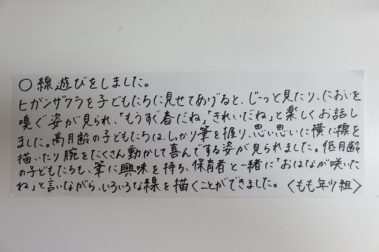 ○線遊びをしました。
ヒガンザクラを子どもたちに見せてあげると、じーっと見たり、においを
嗅ぐ姿が見られ、「もうすぐ春だね」「きれいだね」と楽しくお話し
しました。高月齢の子どもたちは、しっかり筆を握り、思い思いに横に線を
描いたり腕をたくさん動かして喜んでする姿が見られました。低月齢
の子どもたちも、筆に興味を持ち、保育者と一緒に「おはなが咲いた
ね」と言いながら、いろいろな線を描くことができました。〈もも年少組〉